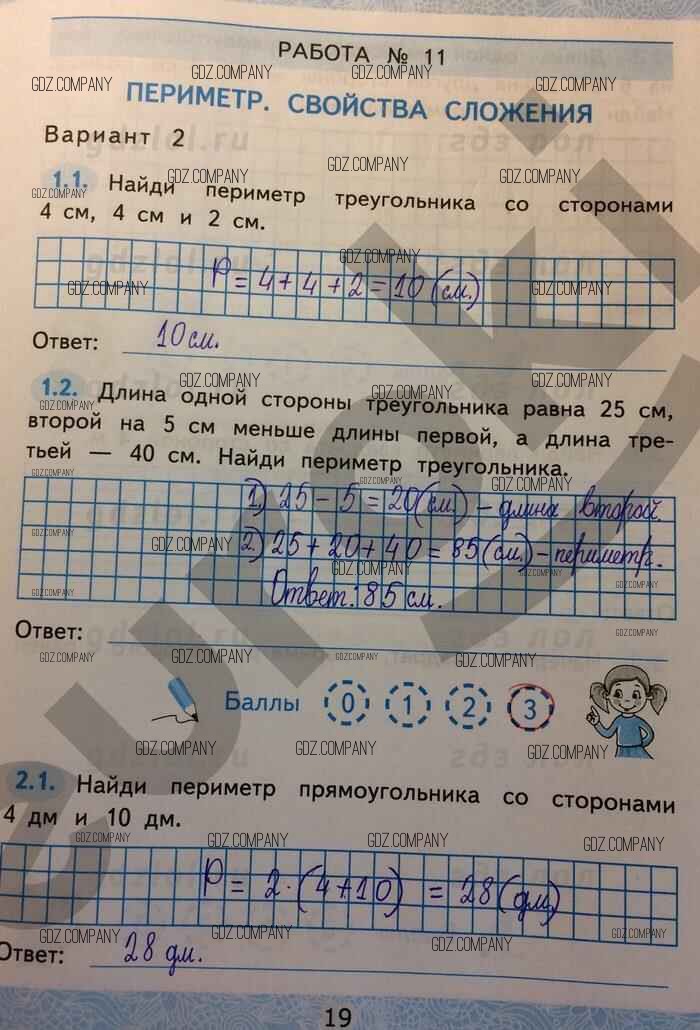 РАБОТА № 11
ПЕРИМЕТР. СВОЙСТВА СЛОЖЕНИЯ
Вариант 2
1.1. Найди периметр треугольника со сторонами
4 см, 4 см и 2 см.
P = 4 + 4 + 2 = 10 (см.)
Ответ: 10 см.
1.2. Длина одной стороны треугольника равна 25 см,
второй на 5 см меньше длины первой, а длина тре-
тьей — 40 см. Найди периметр треугольника.
1) 25 - 5 = 20 (см.) - длина второй.
2) 25 + 20 + 40 = 85 (см.) - периметр.
Ответ: 85 см.
Ответ:
Баллы 0 1 2 3
2.1. Найди периметр прямоугольника со сторонами
4 дм и 10 дм.
P = 2 · (4+10) = 28 (дм)
Ответ: 28 дм.
19
GDZ.COMPANY
euroki